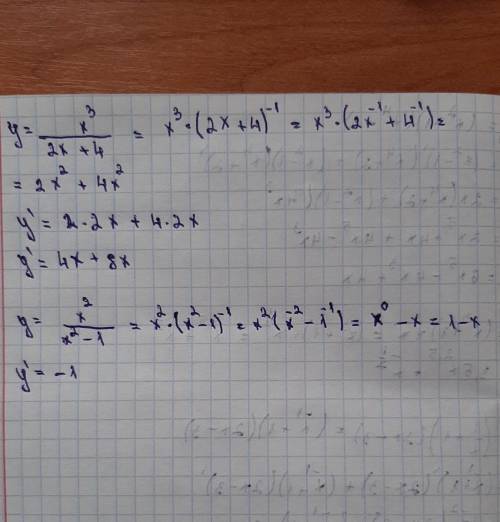 y = x³/(2x + 4) = x³·(2x + 4)⁻¹ = x³·(2x⁻¹ + 4⁻¹) =
= 2x² + 4x²
y' = 2·2x + 4·2x
y' = 4x + 8x
y = x²/(x² − 1) = x²·(x² − 1)⁻¹ = x²(x⁻² − 1⁻¹) = x⁰ − x = 1 − x
y' = −1